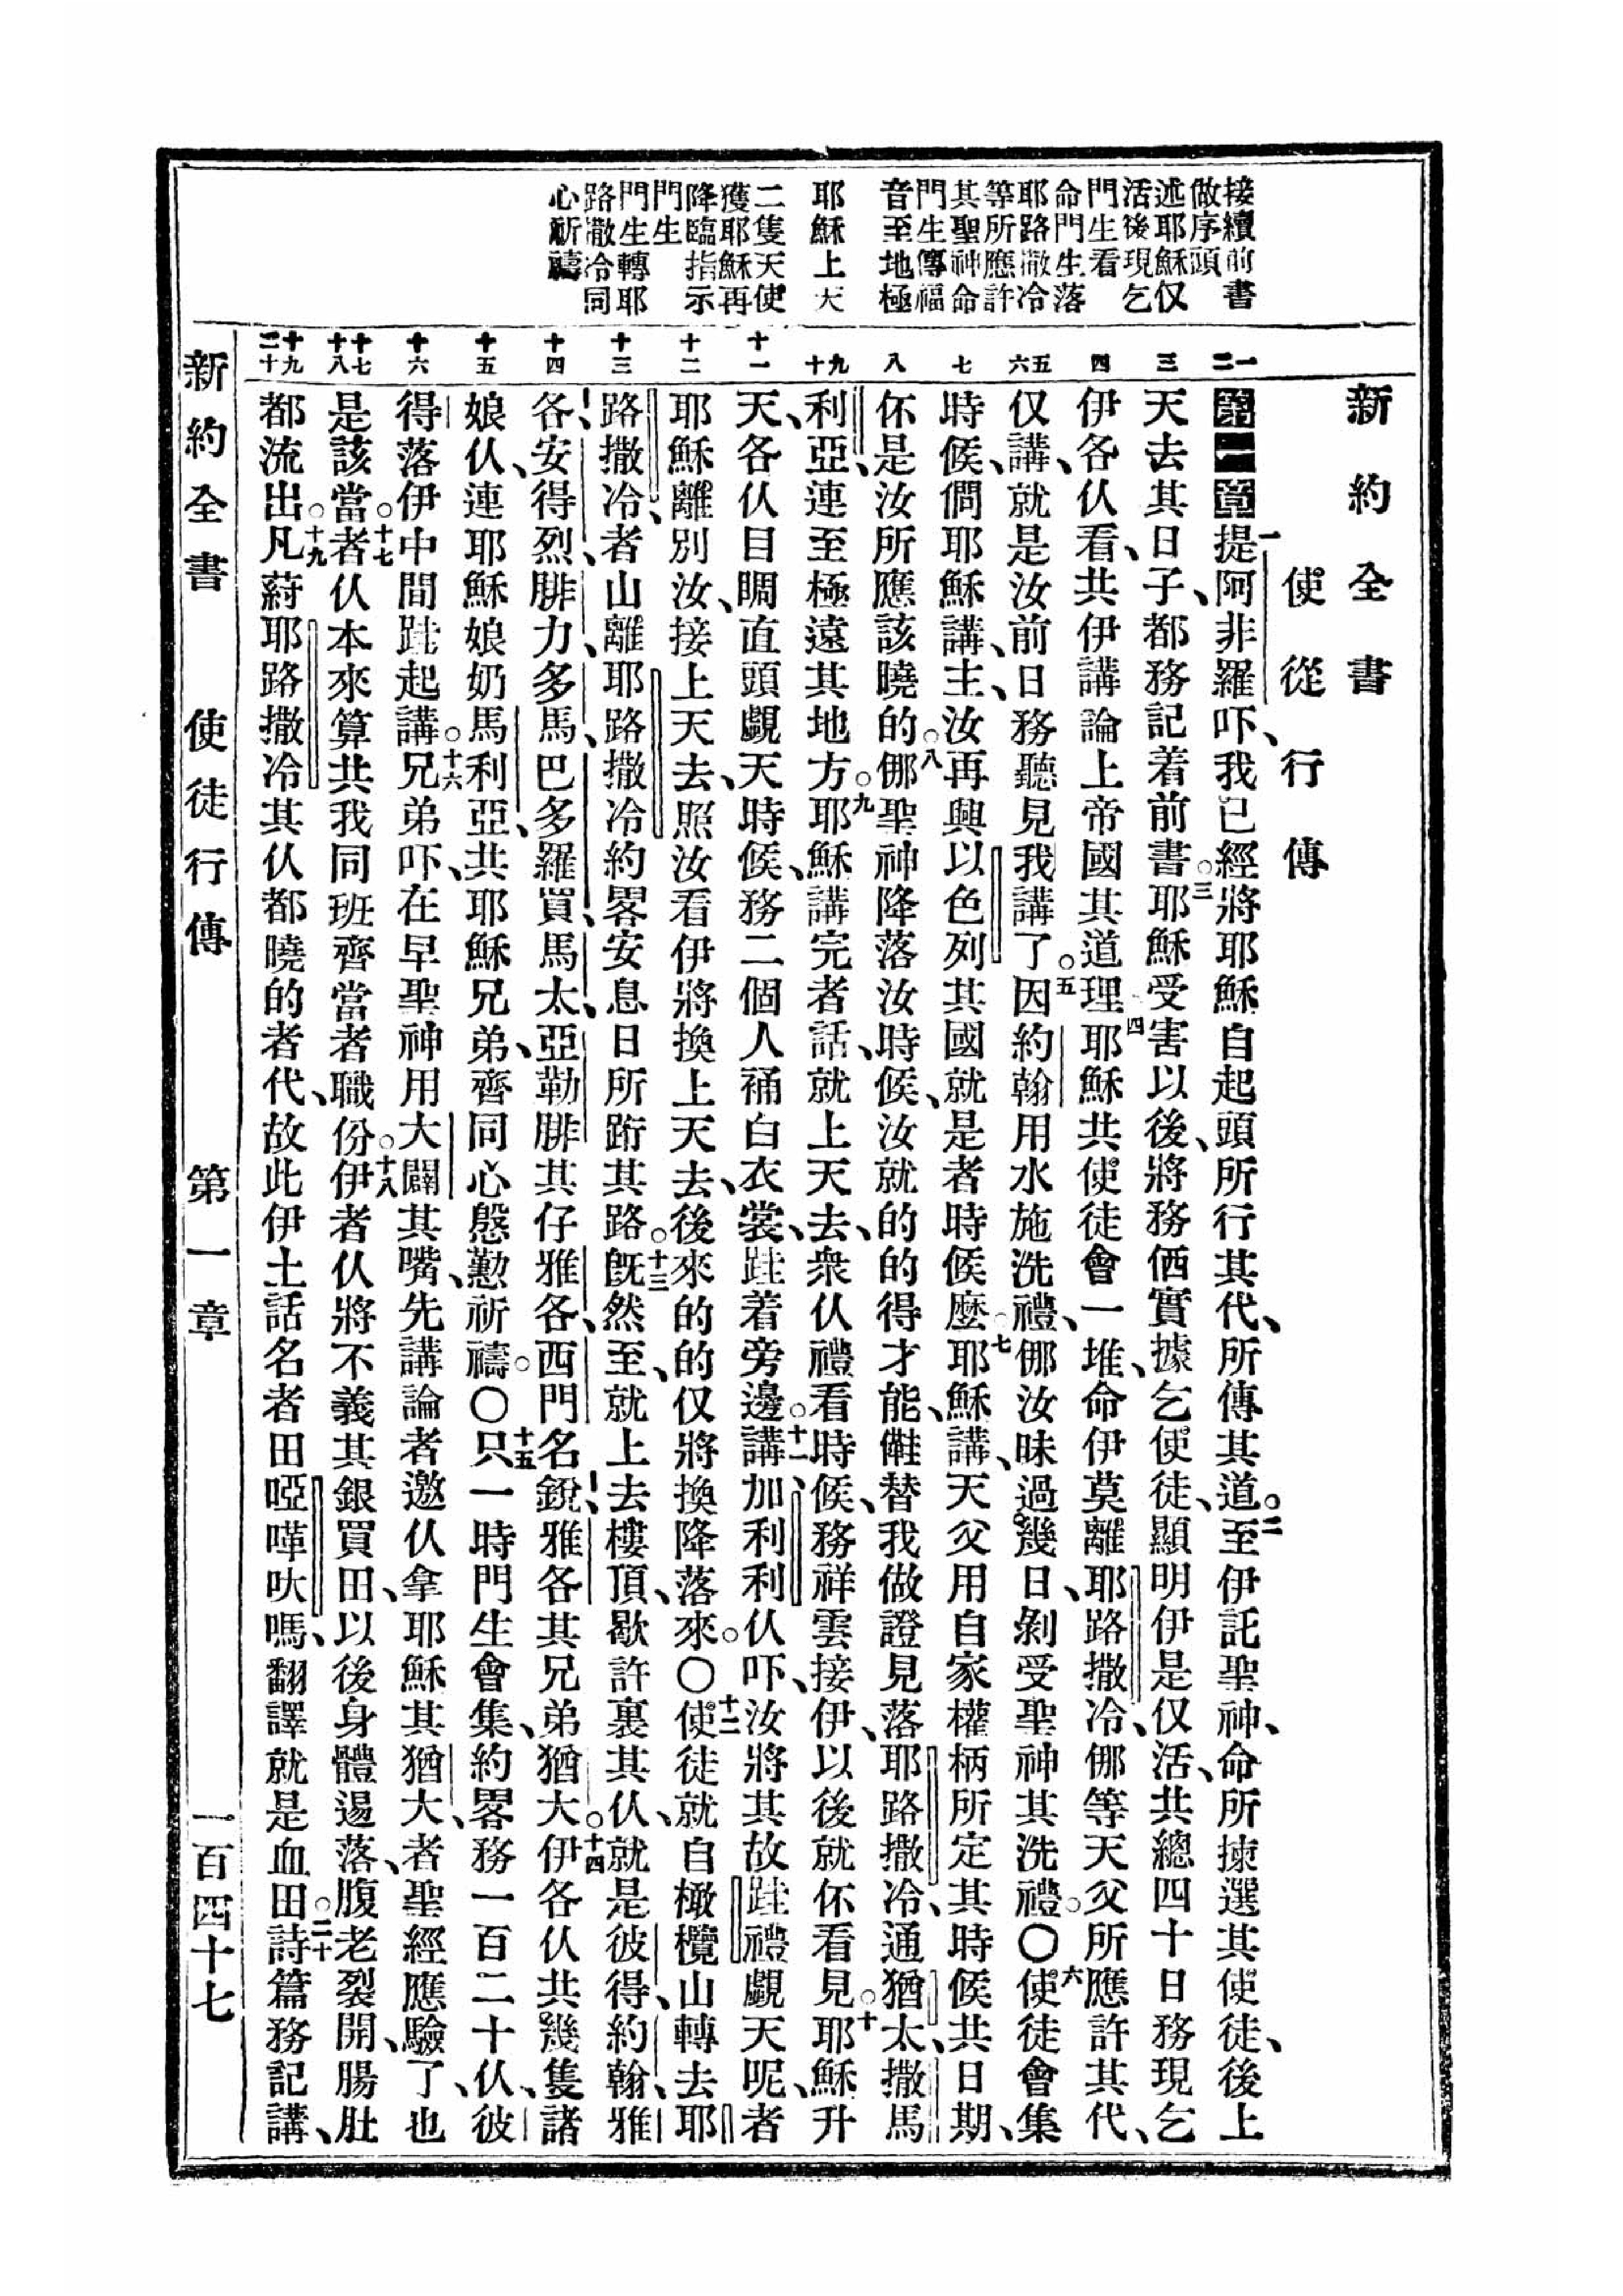 新約全書
使從行傳
接續前書
做序頭
述耶穌仅
活後現乞
門生看
命門生落
耶路撒冷
等所應許
其聖神命
門生傳福
音至地極
耶穌上天
二隻天使
獲耶穌再
降臨指示
門生
門生轉耶
路撒冷同
心祈禱
一
二
三
四
五
六
七
八
九
十
十一
十二
十三
十四
十五
十六
十七
十八
十九
二十
第一章一提阿非羅吓、我已經將耶穌自起頭所行其代、所傳其道。二至伊託聖神、命所揀選其使徒、後上
天去其日子、都務記着前書。三耶穌受害以後、將務価實據乞使徒、顯明伊是仅活、共總四十日務現乞
伊各仫看、共伊講論上帝國其道理四耶穌共使徒會一堆、命伊莫離耶路撒冷、㑚等天父所應許其代、
仅講、就是汝前日務聽見我講了。五因約翰用水施洗禮、㑚汝昧過幾日、剝受聖神其洗禮。〇六使徒會集、
時候、僩耶穌講、主、汝再興以色列其國就是者時候麼七耶穌講、天父用自家權柄所定其時候共日期、
伓是汝所應該曉的。八㑚聖神降落汝時候、汝就的的得才能、𠆧替我做證見落耶路撒冷、通猶太、撒馬
利亞、連至極遠其地方。九耶穌講完者話、就上天去、衆仫禮看時候、務祥雲接伊、以後就伓看見。十耶穌升
天、各仫目睭直頭覷天時候、務二個人䘄白衣裳、跬着旁邊。十一講、加利利仫吓、汝將其故跬禮覷天呢、者
耶穌離別汝、接上天去、照汝看伊將換上天去、後來的的仅將換降落來。〇十二使徒就自橄欖山轉去耶
路撒冷、者山離耶路撒冷約畧安息日所䟰其路。十三旣然至、就上去樓頂、歇許裏其仫、就是彼得、約翰、雅
各、安得烈、腓力、多馬、巴多羅買、馬太、亞勒腓其仔雅各、西門名銳、雅各其兄弟猶大。十四伊各仫共幾隻諸
娘仫、連耶穌娘奶馬利亞、共耶穌兄弟、齊同心慇懃祈禱。〇十五只一時門生會集、約畧務一百二十仫、彼
得落伊中間跬起講。十六兄弟吓、在早聖神用大闢其嘴、先講論者邀仫拿耶穌其猶大、者聖經應驗了、也
是該當。十七者仫本來算共我同班齊當者職份。十八伊者仫將不義其銀買田、以後身體逿落、腹老裂開、腸肚
都流出。十九凡蒔耶路撒冷其仫都曉的者代、故此伊土話名者田啞嗶吙嗎、翻譯就是血田。二十詩篇務記講、
新約全書
使徒行傳
第一章
一百四十七